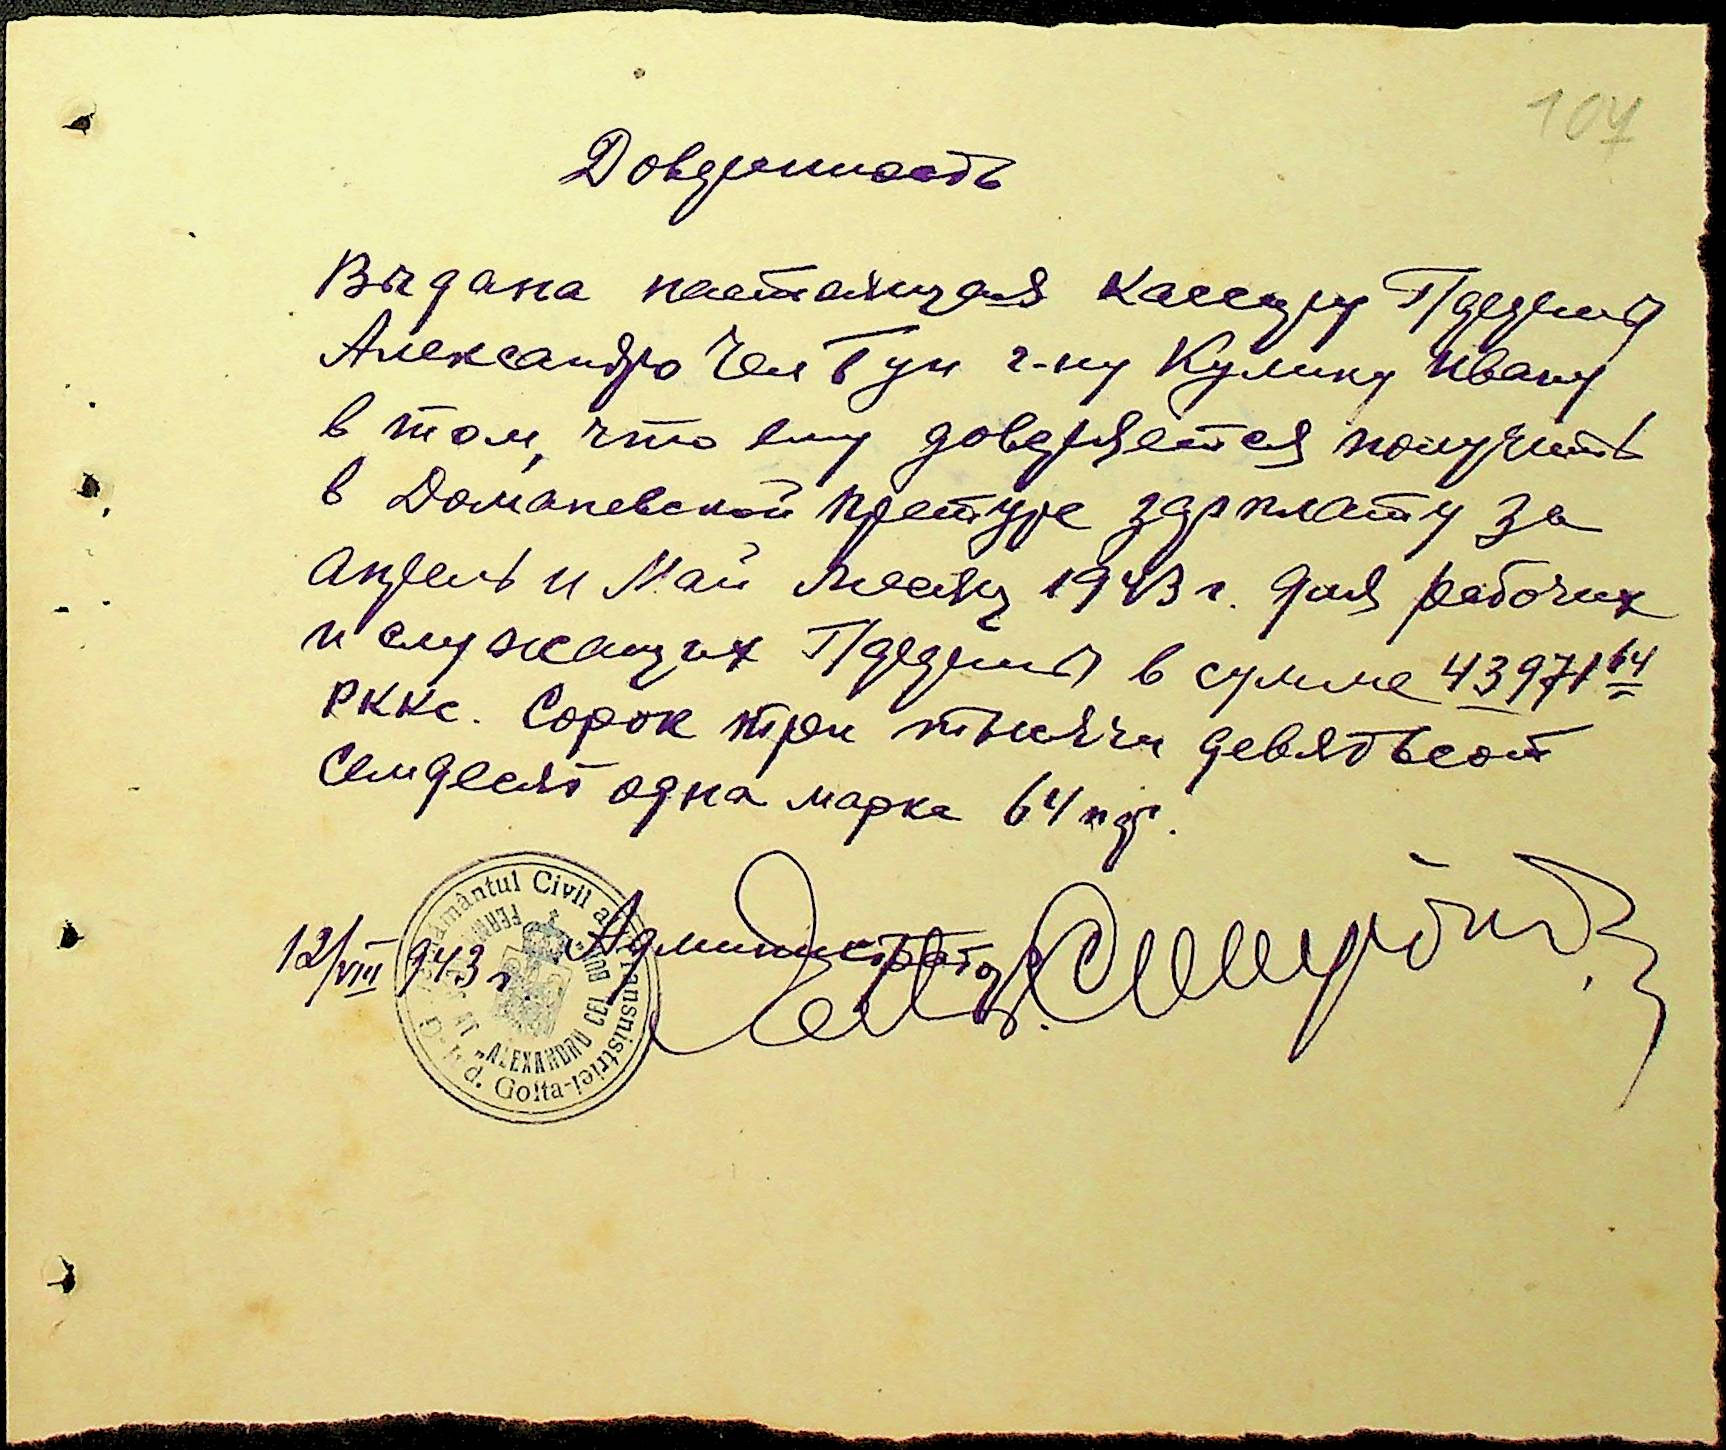 107
Доверенность
Выдана настоящая кассиру Г/фермы
Александро Чел Бун г-ну Кулику Ивану
в том, что ему доверяется получить
в Доманевской претуре зарплату за
апрель и май месяц 1943 г. для рабочих
и служащих Г/фермы в сумме 43971 64
РККС. Сорок три тысячи девятьсот
семдесят одна марка 64 пф.
12/VIII 943 г. Администратор
Guvernământul Civil al Transnistriei
Jud. Golta
FERMA
"ALEXANDRU CEL BUN"